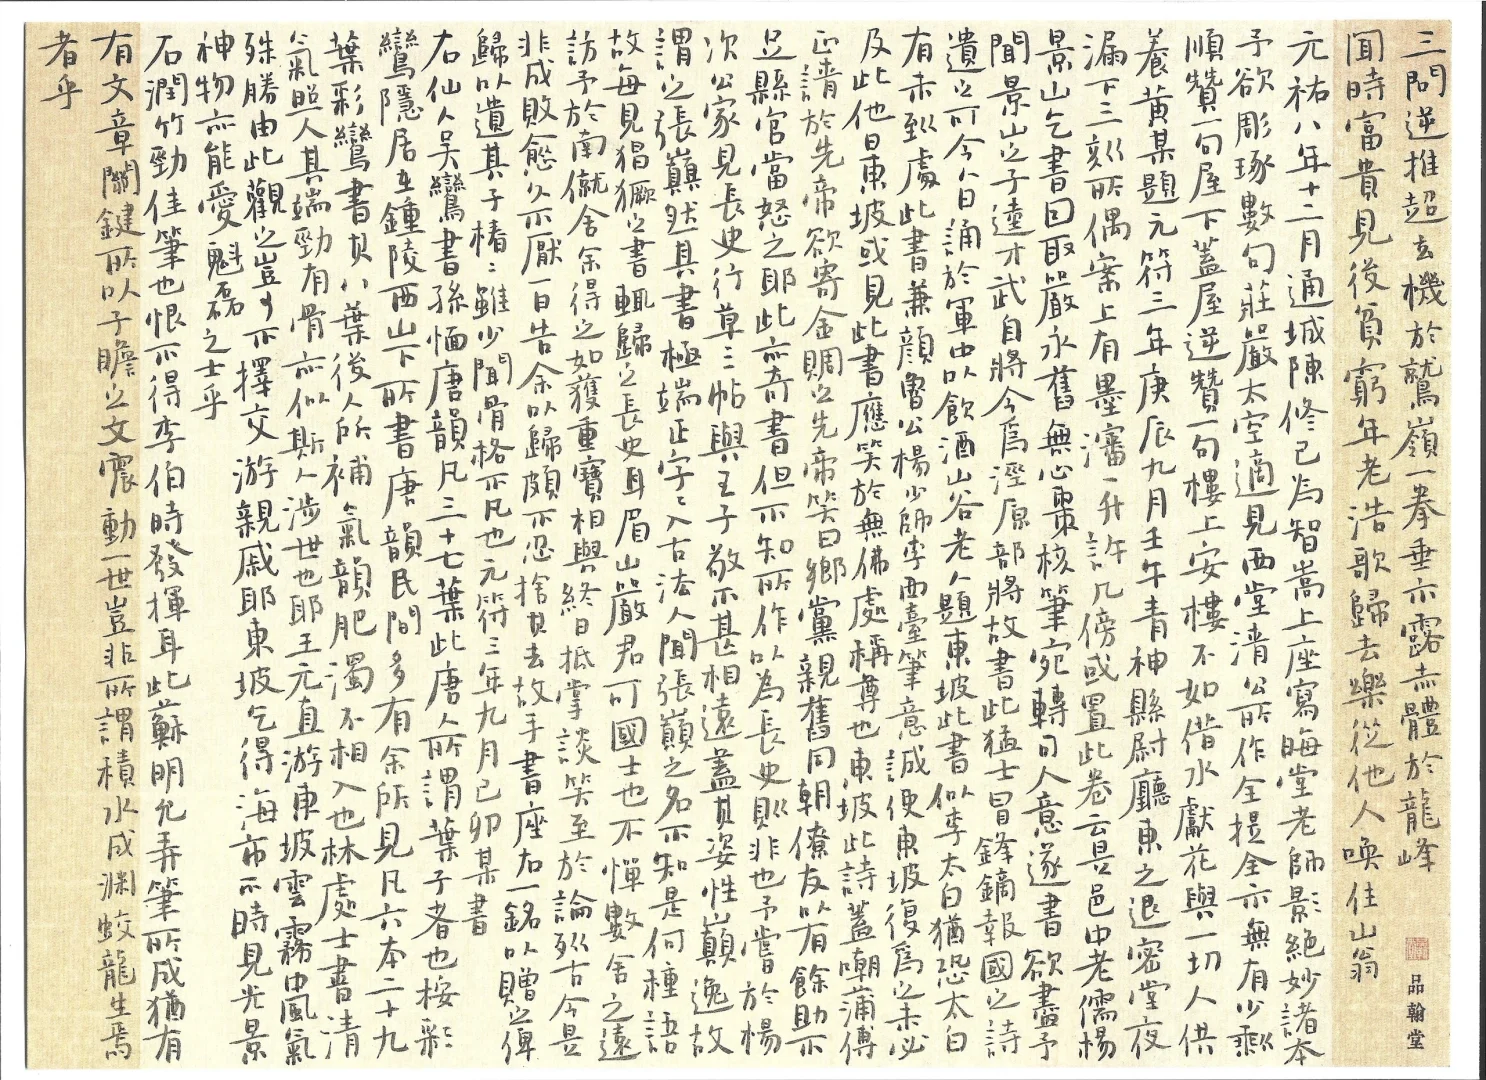 三問逆推超玄機於鷲嶺一拳垂示露赤體於龍峰
聞時富貴見後貧窮年老浩歌歸去樂從他人喚住山翁
元祐八年十二月通城陳修己為智嵩上座寫晦堂老師影絕妙諸本
予欲彫琢數句莊嚴太空適見西堂清公所作全提全示無有少剩
順贊一句屋下蓋屋逆贊一句樓上安樓不如借水獻花與一切人供
養黃某題元符三年庚辰九月壬午青神縣尉廳東之退密堂夜
漏下三刻所偶案上有墨瀋一升許几傍或置此卷云是邑中老儒楊
景山乞書回取嚴永舊無心棗核筆宛轉可人意遂書欲盡予
聞景山之子逵才武自將今為涇原部將故書此猛士冒鋒鏑報國之詩
遺之可令八日誦於軍中以飲酒山谷老人題東坡此書似李太白猶恐太白
有未到處此書兼顏魯公楊少師李西臺筆意誠使東坡復為之未必
及此他日東坡或見此書應笑於無佛處稱尊也東坡此詩蓋嘲蒲傳
正請於先帝欲寄金賙之先帝笑曰鄉黨親舊同朝僚友以有餘助不
足縣官當怒之耶此亦奇書但不知所作以為長史則非也予嘗於楊
次公家見長史行草三帖與王子敬不甚相遠蓋其姿性顛逸故
謂之張顛然其書極端正字〻入古法人間張顛之名不知是何種語
故每見猖獗之書輒歸之長史耳眉山嚴君可國士也不憚數舍之遠
訪予於南僦舍余得之如獲重寶相與終日抵掌談笑至於論列古今是
非成敗愈久不厭一日告余以歸頗不忍捨其去故手書座右一銘以贈之俾
歸以遺其子椿〻雖少聞骨格不凡也元符三年九月己卯某書
右仙人吳彩鸞書孫愐唐韻凡三十七葉此唐人所謂葉子者也桉彩
鸞隱居在鍾陵西山下所書唐韻民間多有余所見凡六本二十九
葉彩鸞書其八葉後人所補氣韻肥濁不相入也林處士書清
氣照人其端勁有骨亦似斯人涉世也耶王元直游東坡雲霧中風氣
殊勝由此觀之豈可不擇交游親戚耶東坡乞得海市不時見光景
神物亦能愛魁磊之士乎
石潤竹勁佳筆也恨不得李伯時發揮耳此蘇明允弄筆所成猶有
有文章關鍵所以子瞻之文震動一世豈非所謂積水成淵蛟龍生焉
者乎
品翰堂